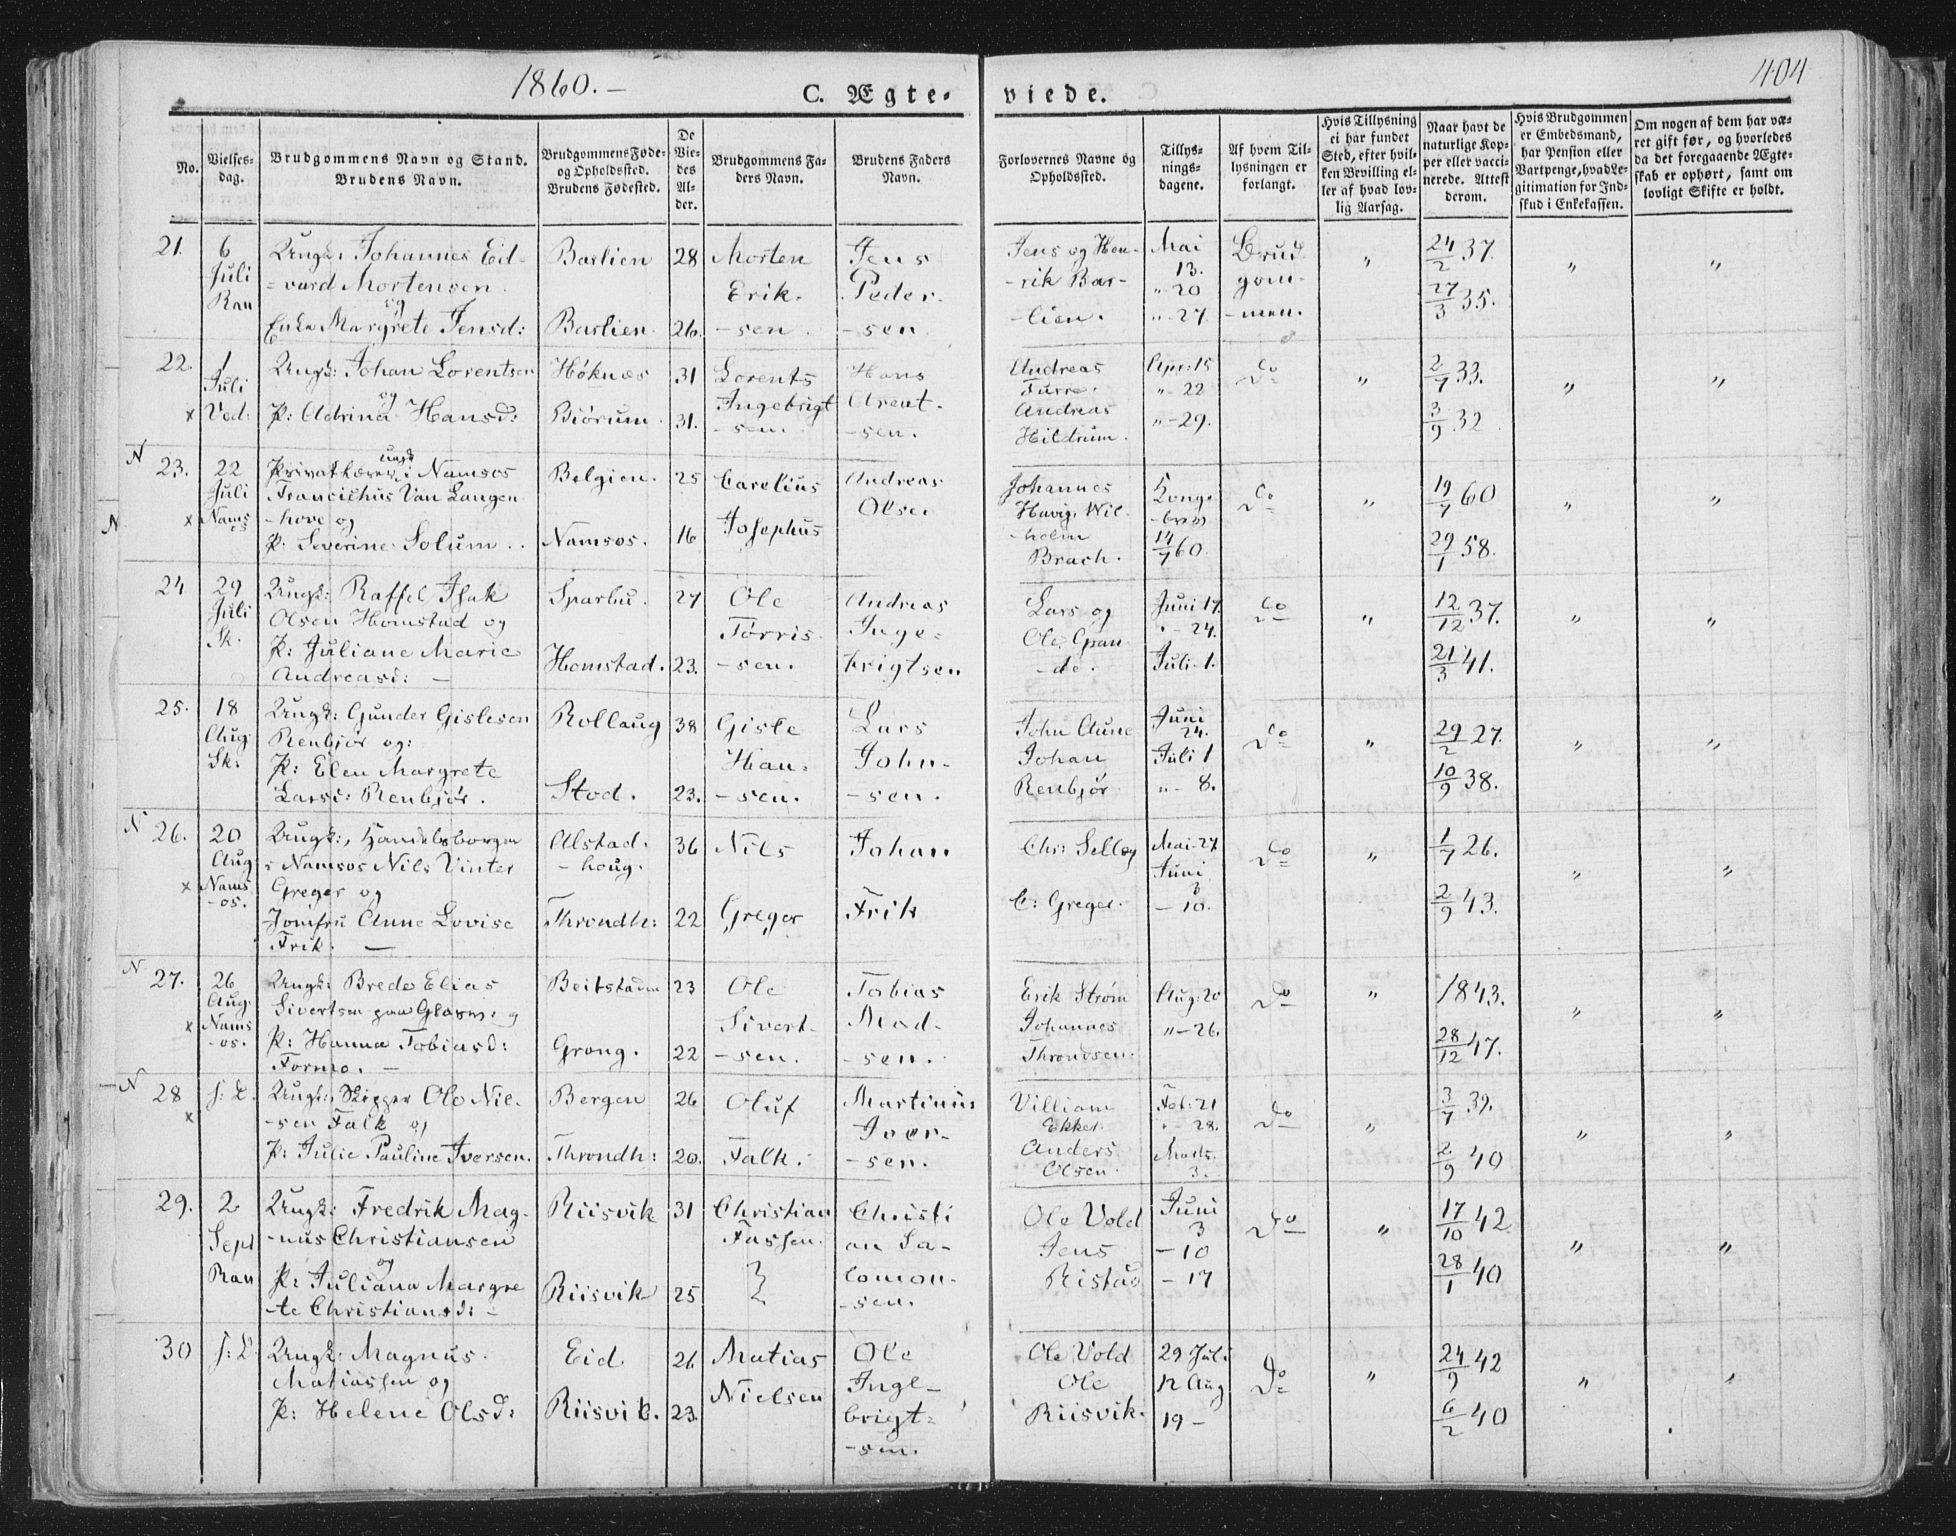 1860.-
C. Ægte-
viede.
404
No.
Vielses-
dag.
Brudgommens Navn og Stand.
Brudens Navn.
Brudgommens Føde-
og Opholdssted.
Brudens Fødested.
De
Vie-
des
Al-
der.
Brudgommens Fa-
ders Navn.
Brudens Faders
Navn.
Forlovernes Navne og
Opholdssted.
Tillys-
nings-
dagene.
Af hvem Til-
lysningen er
forlangt.
Hvis Tillysning
ei har fundet
Sted, efter hvil-
ken Bevilling el-
ler af hvad lov-
lig Aarsag.
Naar havt de
naturlige Kop-
per eller vacci-
nerede. Attest
derom.
Hvis Brudgommen
er Embedsmand,
har Pension eller
Vartpenge, hvad Le-
gitimation for Ind-
skud i Enkekassen.
Om nogen af dem har væ-
ret gift før, og hvorledes
da det foregaaende Ægte-
skab er ophørt, samt om
lovligt Skifte er holdt.
21.
6
Juli
Ran
Ungk: Johannes Eid-
-vard Mortensen
og
Enke Margrete Jensd:
Barlien
Barlien.
28
26.
Morten
Erik-
-sen.
Jens
Peder-
-sen.
Jens og Hen-
-rik Bar-
-lien.
Mai
13.
"-20
"-27.
Brud
gom-
-men.
"
24/2 37.
27/3 35.
"
"
22.
1
Juli
x Ved:
Ungk: Johan Lorentsen
og
P: Adrina Hansd:
Høknæs
Biörum.
31
31.
Lorents
Ingebrigt
-sen.
Hans
Arent-
-sen.
Andreas
Furre.
Andreas
Hildrum.
Apr: 15
"-22
"-29.
Do
"
2/7 33.
3/9 32
"
"
N
23.
22
Juli
x Nams
os
ungk
Privatlærer i Namsos
Francischus Van Langen
-hove og
N
P: Severine Solum..
Belgien.
Namsos.
25
16
Carelius
Josephus
Andreas
Olsen
Johannes
Havig, Wil-
-helm
Brach.
Konge
-brev
14/7 60.
Do
"
19/7 60
29/1 58.
"
"
24
29
Juli
Sk.
Ungk: Raffel Isak
Olsen Homstad og
P: Juliane Marie
Andreasd: -
Sparbu.
Homstad.
27
23.
Ole
Törris-
-sen.
Andreas
Inge-
brigtsen
Lars og
Ole Gran-
-de.
Juni 17.
"-24.
Juli-1.
Do
"
12/12 37.
21/3 41.
"
"
25.
18
Aug
Sk:
Ungk: Gunder Gislesen
Renbjör og:
P: Elen Margrete
Larsd: Renbjör.
Rollaug
Stod.
38
23.
Gisle
Han-
-sen.
Lars
John-
-sen.
John Aune
Johan
Renbjör
Juni
24.
Juli 1
"- 8.
Do
"
29/2 27.
10/9 38.
"
"
N
26.
20
Aug
x Nams
-os.
Ungk:, Handelsborger
i Namsos Nils Vinter
Greger og
Jomfru Anne Lovise
Frik. -
Alstad-
-houg.
Throndh:
36
22
Nils
Greger
Johan
Frik
Chr: Selleg
C: Greger.
Mai-27
Juni
3
-10.
Do
"
1/7 26.
2/9 43.
"
"
N
27.
26
Aug.
x Nams
-os.
Ungk: Brede Elias
Sivertsen paa Glasn: og
P: Hanna Tobiasd:
Formo. -
Beitstaden
Grong.
23
22
Ole
Sivert-
-sen.
Tobias
Mad-
-sen.
Erik Ström
Johannes
Throndsen.
Aug: 20
"-26.
Do
"
1843.
28/12 47.
"
"
N
28
x
s: D.
Ungk:, Skipper Ole Niel-
-sen Falk og
P: Julie Pauline Iversen.
Bergen
Throndh:
26
20.
Oluf
Falk.
Martinus
Iver-
-sen.
Villiam
Ekker.
Anders
Olsen.
Feb: 21
"- 28.
Marts.
3.
Do
"
3/7 39.
2/9 40
"
"
29.
2
Sept
Ran
Ungk: Fredrik Mag-
-nus Christiansen
og
P: Juliana Margre
-te Christiansd: -
Riisvik
Riisvik
31
25
Christian
Fassen.
Christi
an Sa-
lomon-
-sen.
Ole Vold
Jens
Ristad
Juni
3
-10
-17
Do
"
17/10 42
28/1 40
"
"
30
s: D.
Ungk: Magnus
Matiassen og
P: Helene Olsd:
Eid
Riisvik.
26
23.
Matias
Nielsen
Ole
Inge-
brigt-
-sen.
Ole Vold
Ole
Riisvik.
29 Juli
12 Aug
19-
Do
"
24/9 42
6/2 40
"
"